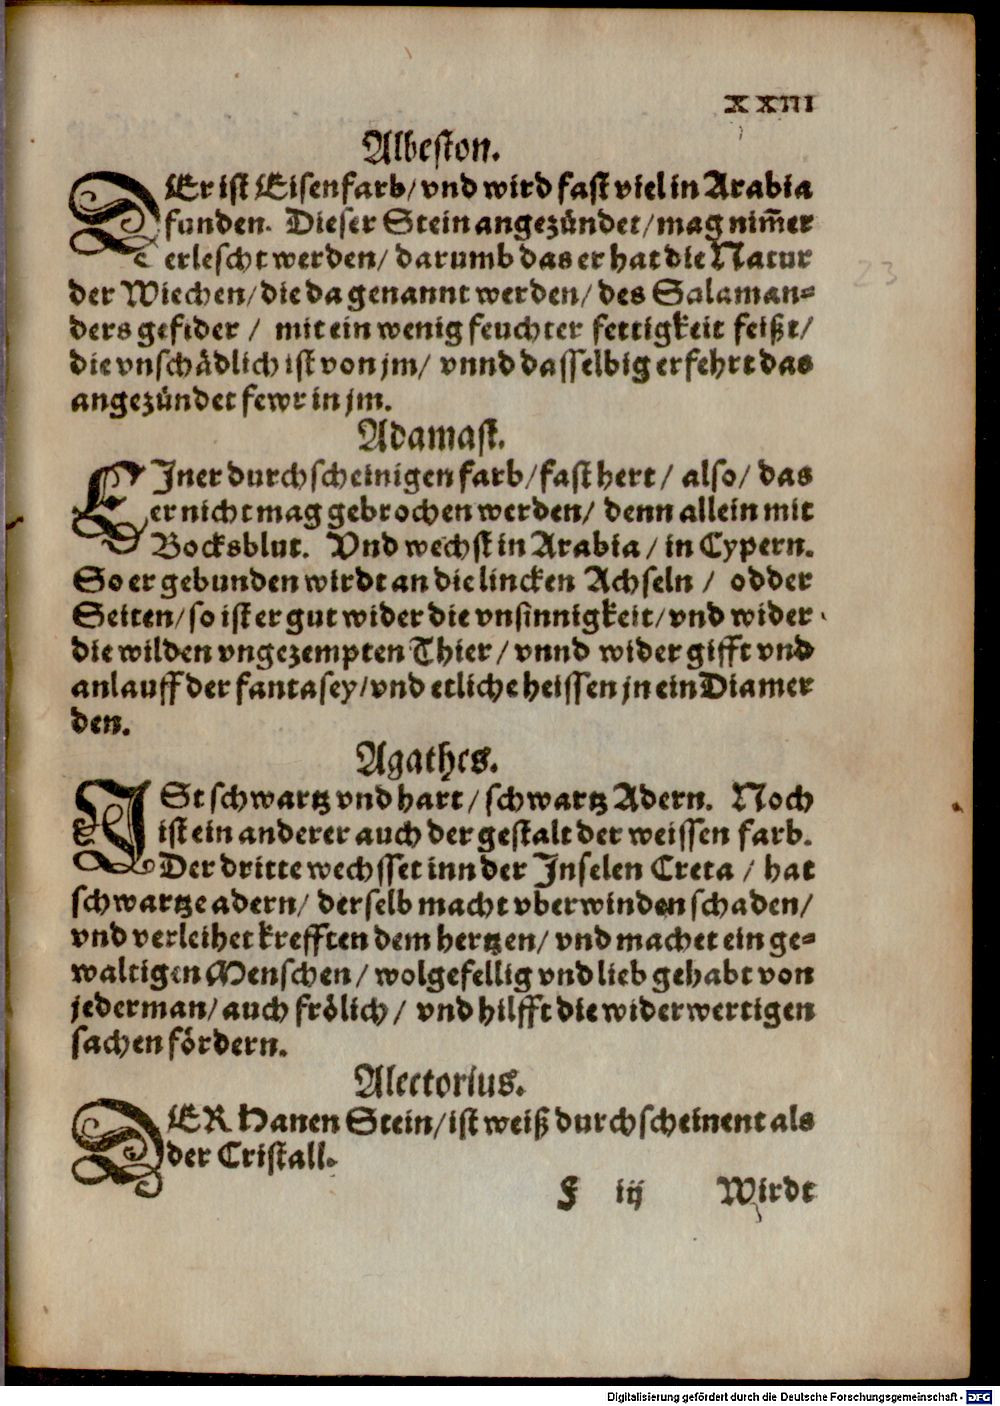 XXIII
Albeston.
DEr ist Eisenfarb/ vnd wird fast viel in Arabia
funden. Dieser Stein angezündet/ mag nim̃er
erlescht werden/ darumb das er hat die Natur
der Wiechen/ die da genannt werden/ des Salaman⸗
ders gefider / mit ein wenig feuchter fettigkeit feißt/
die vnschådlich ist von jm/ vnnd dasselbig erfehrt das
angezündet fewr in jm.
Adamast.
EJner durchscheinigen farb/ fast hert/ also/ das
er nicht mag gebrochen werden/ denn allein mit
Bocksblut. Vnd wechst in Arabia / in Cypern.
So er gebunden wirdt an die lincken Achseln / odder
Seiten/ so ist er gut wider die vnsinnigkeit/ vnd wider
die wilden vngezempten Thier/ vnnd wider gifft vnd
anlauff der fantasey/ vnd etliche heissen jn ein Diamer
den.
Agathes.
JSt schwartz vnd hart/ schwartz Adern. Noch
ist ein anderer auch der gestalt der weissen farb.
Der dritte wechsset inn der Jnselen Creta / hat
schwartze adern/ derselb macht vberwinden schaden/
vnd verleihet krefften dem hertzen/ vnd machet ein ge⸗
waltigen Menschen/ wolgefellig vnd lieb gehabt von
jederman/ auch frôlich / vnd hilfft die widerwertigen
sachen fôrdern.
Alectorius.
DER Hanen Stein/ ist weiß durchscheinent als
der Cristall.
F iij Wirdt
23
Digitalisierung gefördert durch die Deutsche Forschungsgemeinschaft - DFG